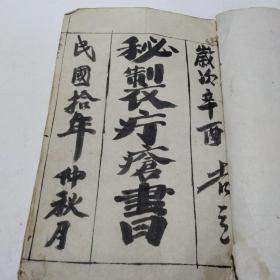 歲次辛酉 吉立
秘製疔瘡書
民國拾年 仲秋月